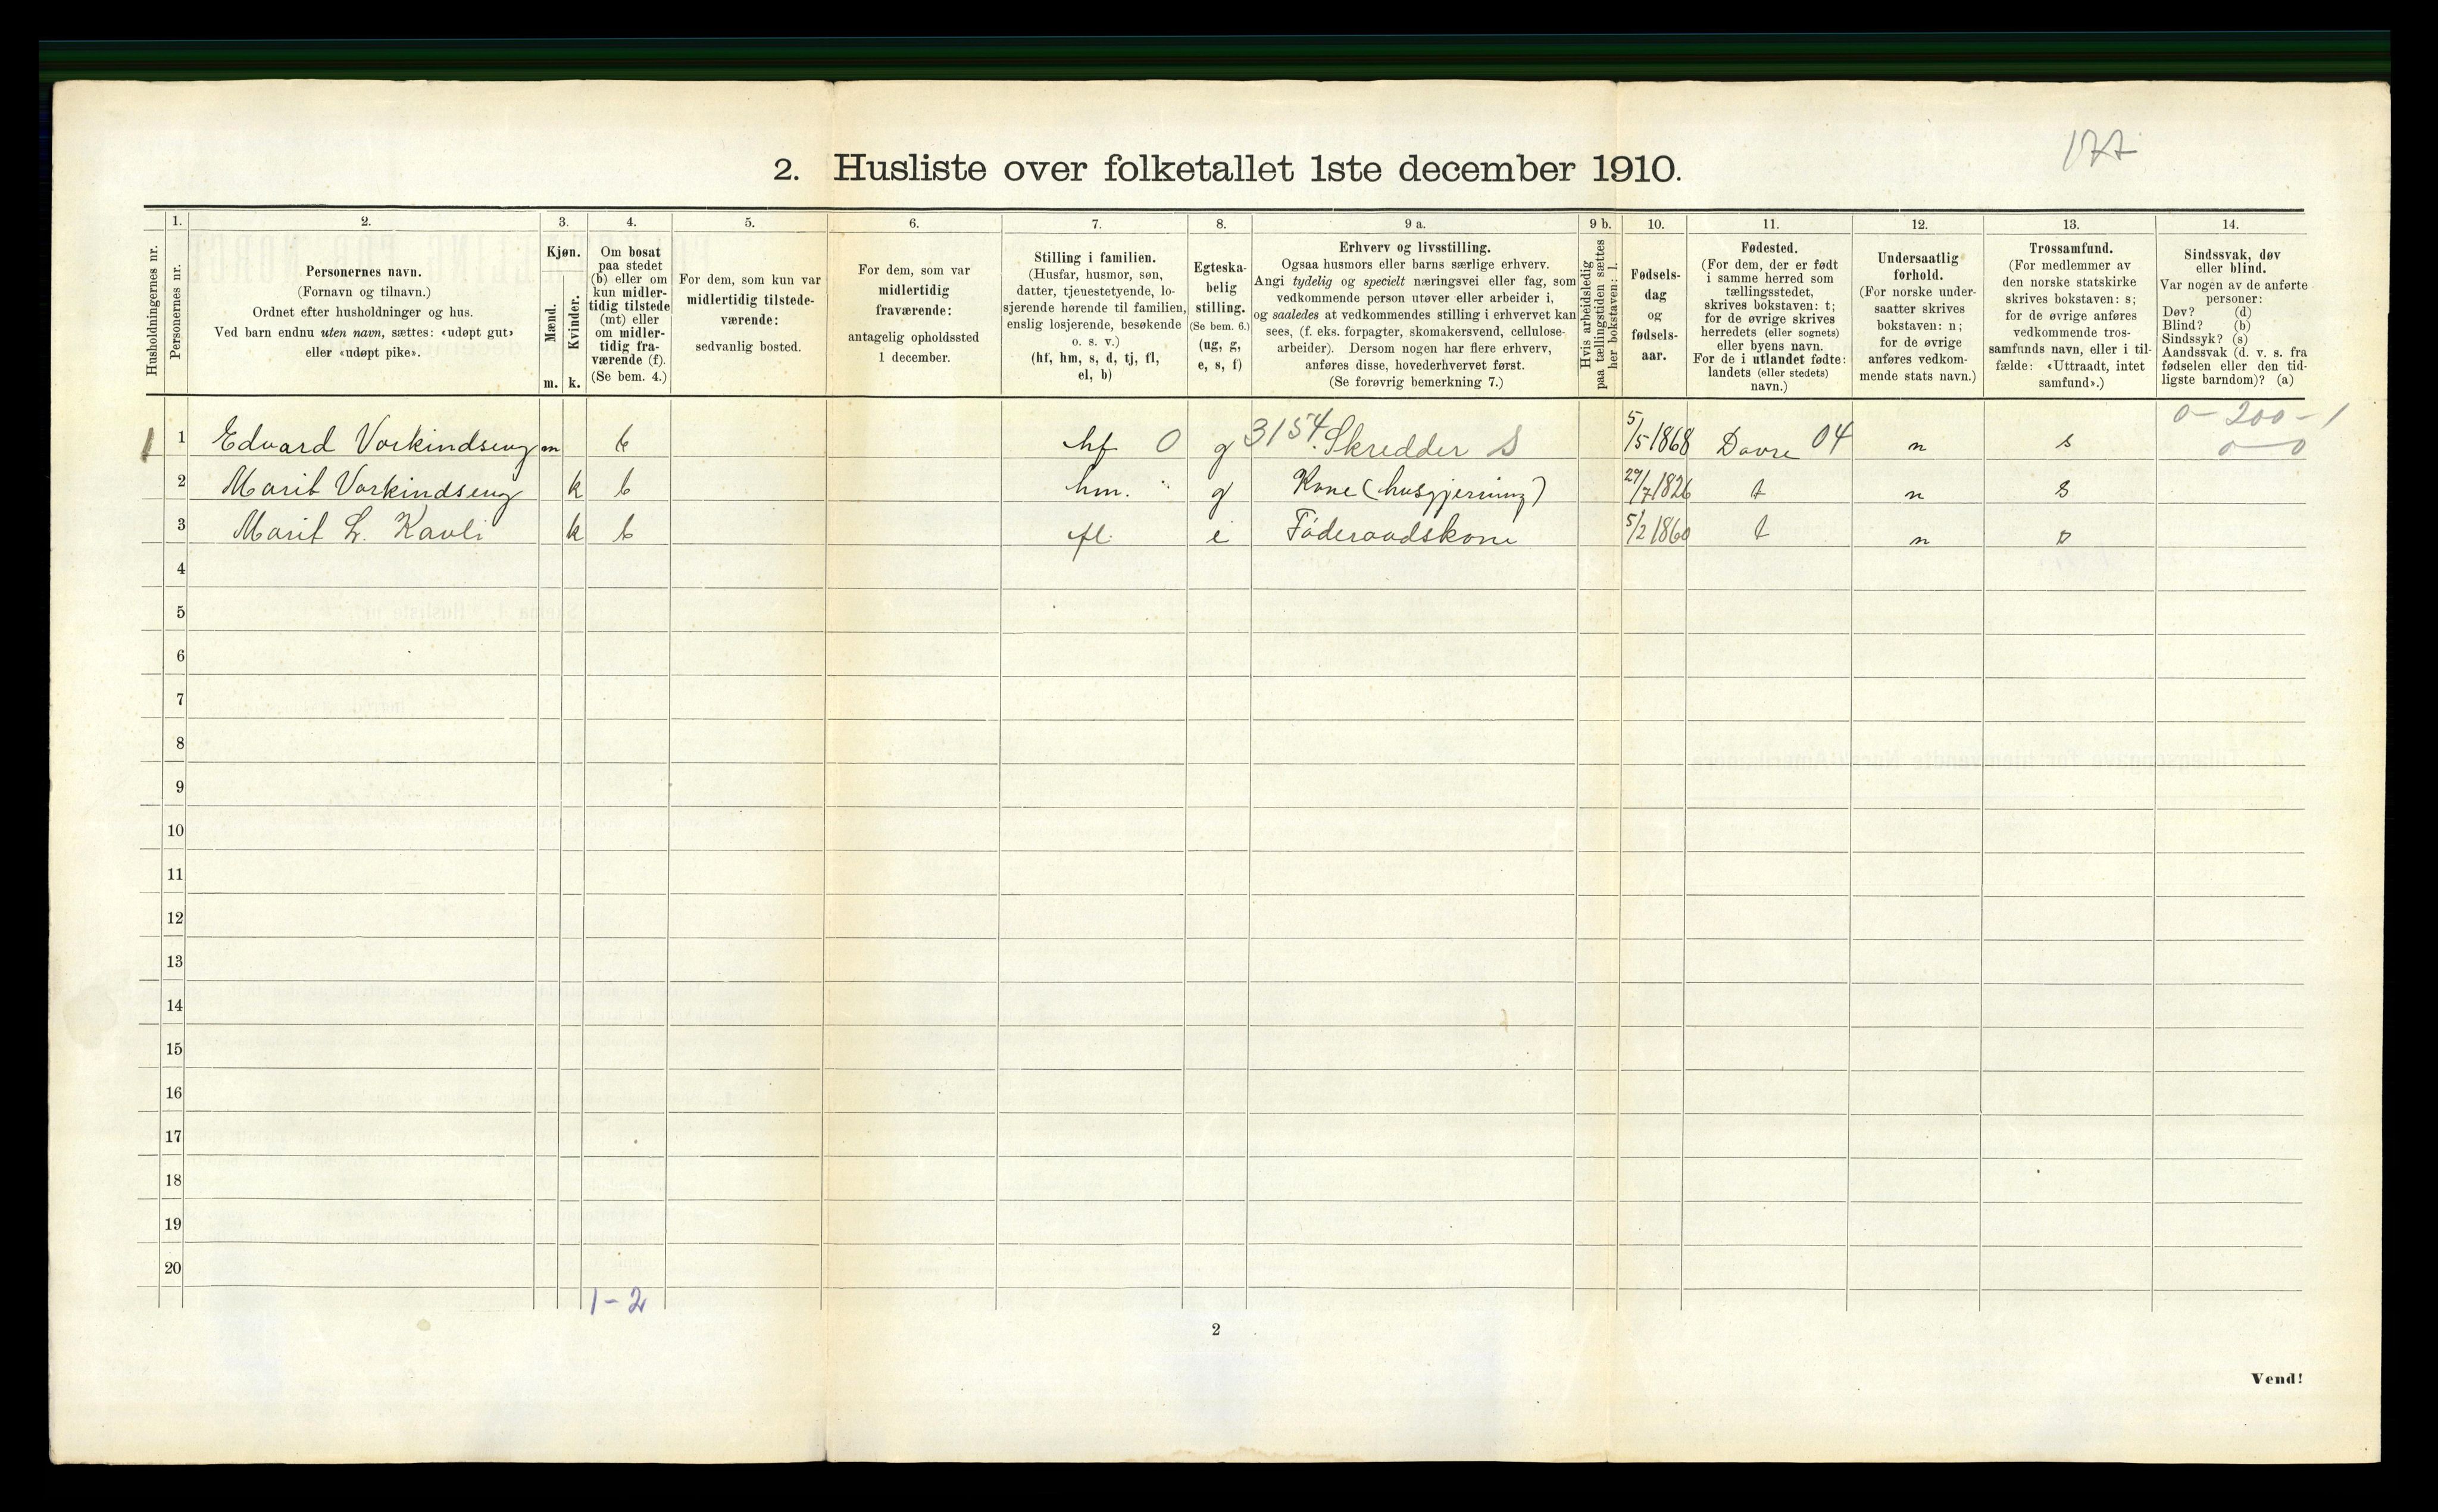 177
2. Husliste over folketallet 1ste december 1910.
Husholdningernes nr.
1.
Personernes nr.
2.
Personernes navn.
(Fornavn og tilnavn.)
Ordnet efter husholdninger og hus.
Ved barn endnu uten navn, sættes: «udøpt gut»
eller «udøpt pike».
3.
Kjøn.
Mænd.
Kvinder.
m. k.
4.
Om bosat
paa stedet
(b) eller om
kun midler-
tidig tilstede
(mt) eller
om midler-
tidig fra-
værende (f).
(Se bem. 4.)
5.
For dem, som kun var
midlertidig tilstede-
værende:
sedvanlig bosted.
6.
For dem, som var
midlertidig
fraværende:
antagelig opholdssted
1 december.
7.
Stilling i familien.
(Husfar, husmor, søn,
datter, tjenestetyende, lo-
sjerende hørende til familien,
enslig losjerende, besøkende
o. s. v.)
(hf, hm, s, d, tj, fl,
el, b)
8.
Egteska-
belig
stilling.
(Se bem. 6.)
(ug, g,
e, s, f)
9 a.
Erhverv og livsstilling.
Ogsaa husmors eller barns særlige erhverv.
Angi tydelig og specielt næringsvei eller fag, som
vedkommende person utøver eller arbeider i,
og saaledes at vedkommendes stilling i erhvervet kan
sees, (f. eks. forpagter, skomakersvend, cellulose-
arbeider). Dersom nogen har flere erhverv,
anføres disse, hovederhvervet først.
(Se forøvrig bemerkning 7.)
9 b.
Hvis arbeidsledig
paa tællingstiden sættes
her bokstaven: l.
10.
Fødsels-
dag
og
fødsels-
aar.
11.
Fødested.
(For dem, der er født
i samme herred som
tællingsstedet,
skrives bokstaven: t;
for de øvrige skrives
herredets (eller sognets)
eller byens navn.
For de i utlandet fødte:
landets (eller stedets)
navn.)
12.
Undersaatlig
forhold.
(For norske under-
saatter skrives
bokstaven: n;
for de øvrige
anføres vedkom-
mende stats navn.)
13.
Trossamfund.
(For medlemmer av
den norske statskirke
skrives bokstaven: s;
for de øvrige anføres
vedkommende tros-
samfunds navn, eller i til-
fælde: «Uttraadt, intet
samfund».)
14.
Sindssvak, døv
eller blind.
Var nogen av de anførte
personer:
Døv? (d)
Blind? (b)
Sindssyk? (s)
Aandssvak (d. v. s. fra
fødselen eller den tid-
ligste barndom)? (a)
0-200-1
1 1 Edvard Vorkindseng m b hf 0 g 3154. Skredder S 5/5 1868 Dovre 04 n s 0-0
2 Marit Vorkindseng k b hm. " g Kone (husgjerning) 29/7 1826 t n s
3 Marit L. Kavli k b fl. e Föderaadskone 5/2 1860 t n s
4
5
6
7
8
9
10
11
12
13
14
15
16
17
18
19
20
1-2
2
Vend!